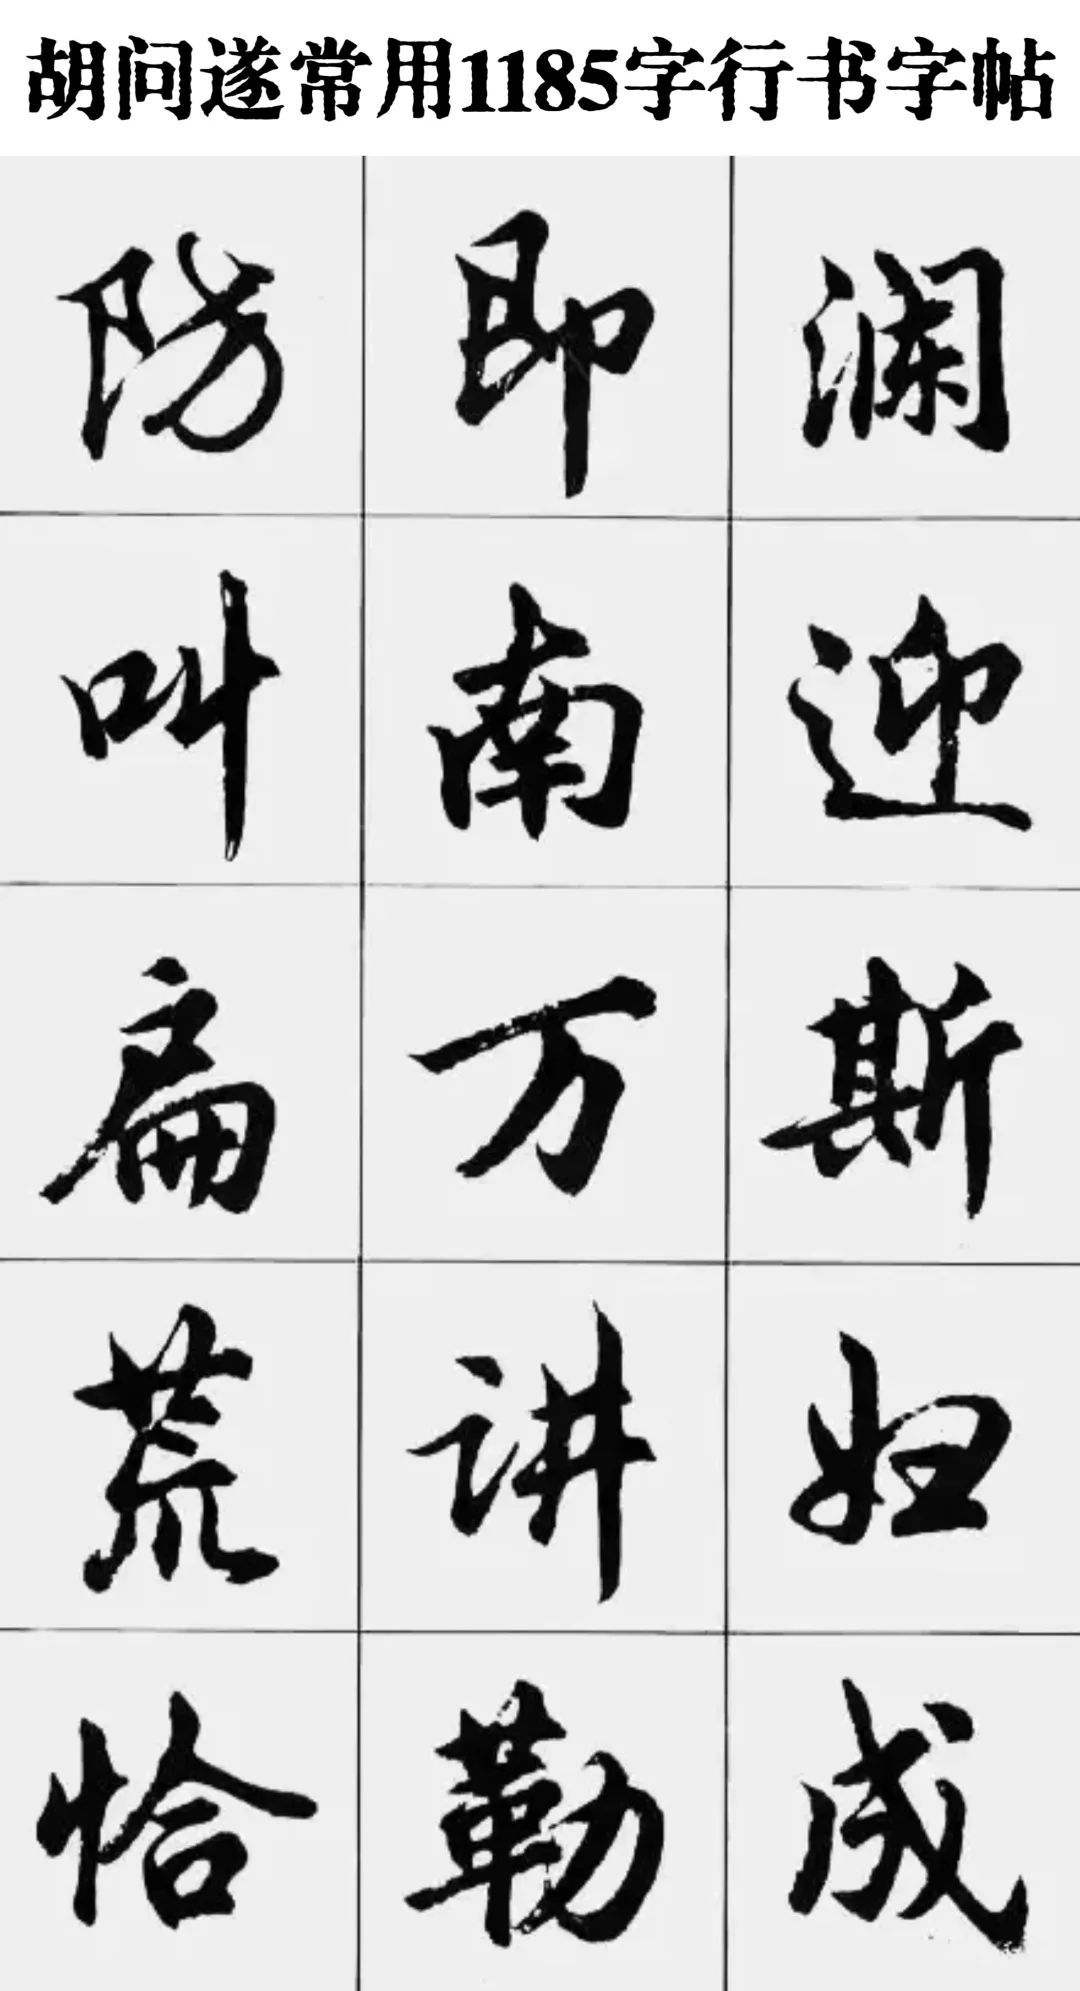 胡问遂常用1185字行书字帖
防即澜
叫南迎
扁万斯
荒讲妇
恰勒成